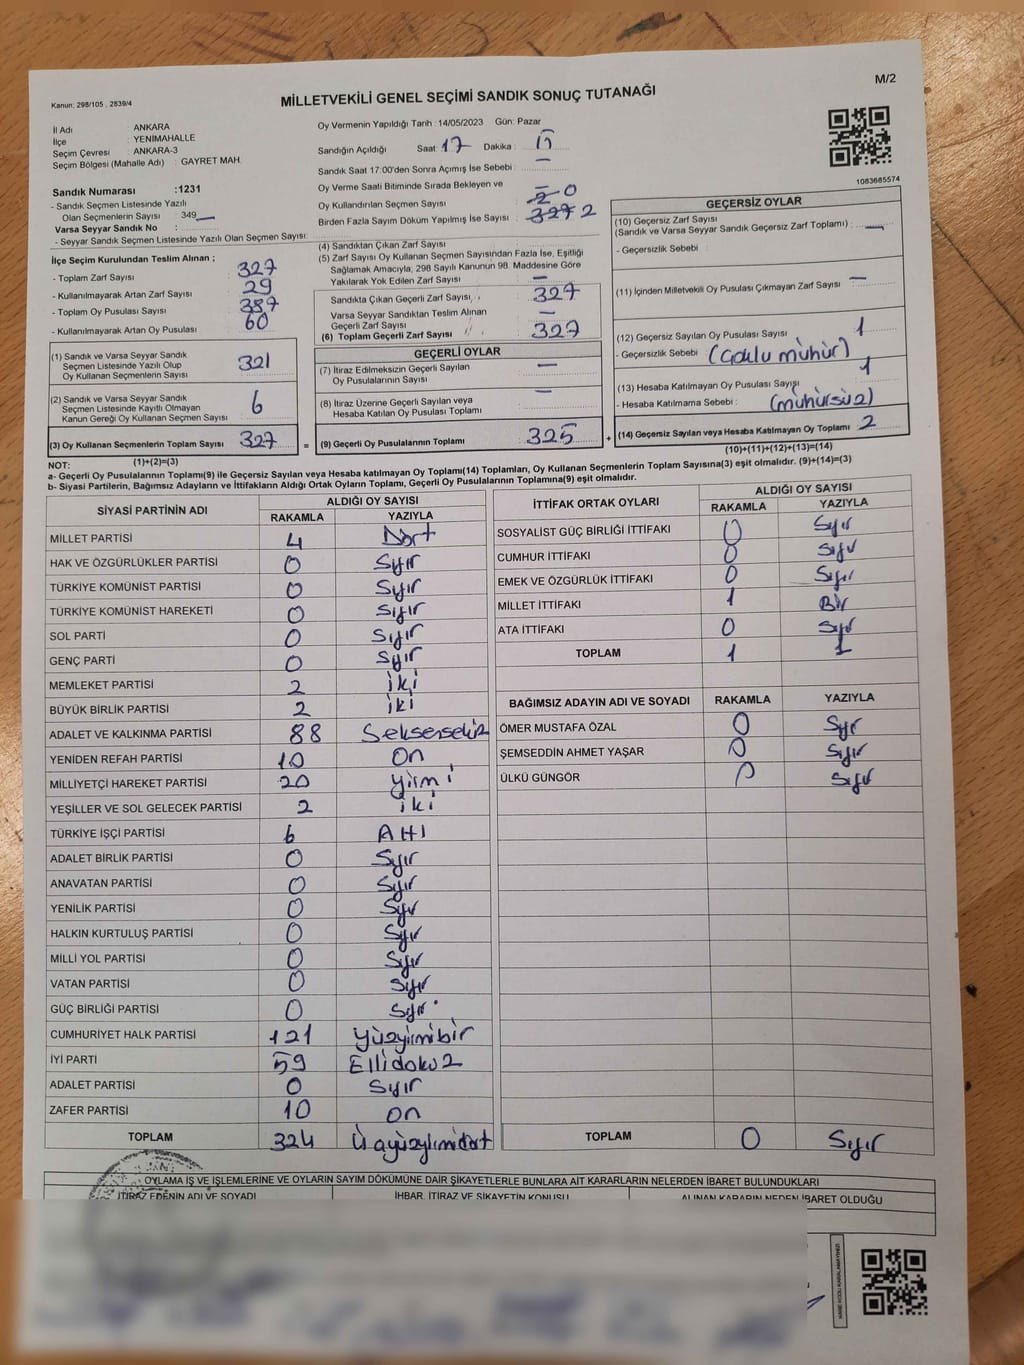 M/2
Kanun: 298/105 , 2839/4
MİLLETVEKİLİ GENEL SEÇİMİ SANDIK SONUÇ TUTANAĞI
İl Adı : ANKARA
İlçe : YENİMAHALLE
Seçim Çevresi : ANKARA-3
Seçim Bölgesi (Mahalle Adı) : GAYRET MAH.
Sandık Numarası :1231
- Sandık Seçmen Listesinde Yazılı
Olan Seçmenlerin Sayısı : 349
Varsa Seyyar Sandık No :
- Seyyar Sandık Seçmen Listesinde Yazılı Olan Seçmen Sayısı:
Oy Vermenin Yapıldığı Tarih : 14/05/2023 Gün: Pazar
Sandığın Açıldığı Saat : 17 Dakika :
Sandık Saat 17:00'den Sonra Açımış İse Sebebi : —
Oy Verme Saati Bitiminde Sırada Bekleyen ve
Oy Kullandırılan Seçmen Sayısı : 0
Birden Fazla Sayım Döküm Yapılmış İse Sayısı : 327 2
1083685574
İlçe Seçim Kurulundan Teslim Alınan ;
- Toplam Zarf Sayısı : 327
- Kullanılmayarak Artan Zarf Sayısı : 29
- Toplam Oy Pusulası Sayısı : 387
- Kullanılmayarak Artan Oy Pusulası : 60
(1) Sandık ve Varsa Seyyar Sandık
Seçmen Listesinde Yazılı Olup
Oy Kullanan Seçmenlerin Sayısı : 321
(2) Sandık ve Varsa Seyyar Sandık
Seçmen Listesinde Kayıtlı Olmayan
Kanun Gereği Oy Kullanan Seçmen Sayısı : 6
(3) Oy Kullanan Seçmenlerin Toplam Sayısı : 327
(4) Sandıktan Çıkan Zarf Sayısı :
(5) Zarf Sayısı Oy Kullanan Seçmen Sayısından Fazla İse, Eşitliği
Sağlamak Amacıyla, 298 Sayılı Kanunun 98. Maddesine Göre
Yakılarak Yok Edilen Zarf Sayısı : —
Sandıkta Çıkan Geçerli Zarf Sayısı : 327
Varsa Seyyar Sandıktan Teslim Alınan
Geçerli Zarf Sayısı : —
(6) Toplam Geçerli Zarf Sayısı : 327
GEÇERLİ OYLAR
(7) İtiraz Edilmeksizin Geçerli Sayılan
Oy Pusulalarının Sayısı : —
(8) İtiraz Üzerine Geçerli Sayılan veya
Hesaba Katılan Oy Pusulası Toplamı : —
= (9) Geçerli Oy Pusulalarının Toplamı : 325 +
GEÇERSİZ OYLAR
(10) Geçersiz Zarf Sayısı
(Sandık ve Varsa Seyyar Sandık Geçersiz Zarf Toplamı) : —
- Geçersizlik Sebebi :
(11) İçinden Milletvekili Oy Pusulası Çıkmayan Zarf Sayısı : —
(12) Geçersiz Sayılan Oy Pusulası Sayısı : 1
- Geçersizlik Sebebi : (Çoklu mühür)
(13) Hesaba Katılmayan Oy Pusulası Sayısı : 1
- Hesaba Katılmama Sebebi : (mühürsüz)
(14) Geçersiz Sayılan veya Hesaba Katılmayan Oy Toplamı : 2
NOT: (1)+(2)=(3)
(10)+(11)+(12)+(13)=(14)
a- Geçerli Oy Pusulalarının Toplamı(9) ile Geçersiz Sayılan veya Hesaba katılmayan Oy Toplamı(14) Toplamları, Oy Kullanan Seçmenlerin Toplam Sayısına(3) eşit olmalıdır. (9)+(14)=(3)
b- Siyasi Partilerin, Bağımsız Adayların ve İttifakların Aldığı Ortak Oyların Toplamı, Geçerli Oy Pusulalarının Toplamına(9) eşit olmalıdır.
SİYASİ PARTİNİN ADI ALDIĞI OY SAYISI
RAKAMLA YAZIYLA
MİLLET PARTİSİ 4 Dört
HAK VE ÖZGÜRLÜKLER PARTİSİ 0 Sıfır
TÜRKİYE KOMÜNİST PARTİSİ 0 Sıfır
TÜRKİYE KOMÜNİST HAREKETİ 0 Sıfır
SOL PARTİ 0 Sıfır
GENÇ PARTİ 0 Sıfır
MEMLEKET PARTİSİ 2 iki
BÜYÜK BİRLİK PARTİSİ 2 iki
ADALET VE KALKINMA PARTİSİ 88 Seksensekiz
YENİDEN REFAH PARTİSİ 10 On
MİLLİYETÇİ HAREKET PARTİSİ 20 Yirmi
YEŞİLLER VE SOL GELECEK PARTİSİ 2 iki
TÜRKİYE İŞÇİ PARTİSİ 6 Altı
ADALET BİRLİK PARTİSİ 0 Sıfır
ANAVATAN PARTİSİ 0 Sıfır
YENİLİK PARTİSİ 0 Sıfır
HALKIN KURTULUŞ PARTİSİ 0 Sıfır
MİLLİ YOL PARTİSİ 0 Sıfır
VATAN PARTİSİ 0 Sıfır
GÜÇ BİRLİĞİ PARTİSİ 0 Sıfır
CUMHURİYET HALK PARTİSİ 121 Yüzyirmibir
İYİ PARTİ 59 Ellidokuz
ADALET PARTİSİ 0 Sıfır
ZAFER PARTİSİ 10 on
TOPLAM 324 Üçyüzyirmidört
İTTİFAK ORTAK OYLARI ALDIĞI OY SAYISI
RAKAMLA YAZIYLA
SOSYALİST GÜÇ BİRLİĞİ İTTİFAKI 0 Sıfır
CUMHUR İTTİFAKI 0 Sıfır
EMEK VE ÖZGÜRLÜK İTTİFAKI 0 Sıfır
MİLLET İTTİFAKI 1 Bir
ATA İTTİFAKI 0 Sıfır
TOPLAM 1 1
BAĞIMSIZ ADAYIN ADI VE SOYADI RAKAMLA YAZIYLA
ÖMER MUSTAFA ÖZAL 0 Sıfır
ŞEMSEDDİN AHMET YAŞAR 0 Sıfır
ÜLKÜ GÜNGÖR 0 Sıfır
TOPLAM 0 Sıfır
OYLAMA İŞ VE İŞLEMLERİNE VE OYLARIN SAYIM DÖKÜMÜNE DAİR ŞİKAYETLERLE BUNLARA AİT KARARLARIN NELERDEN İBARET BULUNDUKLARI
İTİRAZ EDENİN ADI VE SOYADI İHBAR, İTİRAZ VE ŞİKAYETİN KONUSU ALINAN KARARIN NEDEN İBARET OLDUĞU